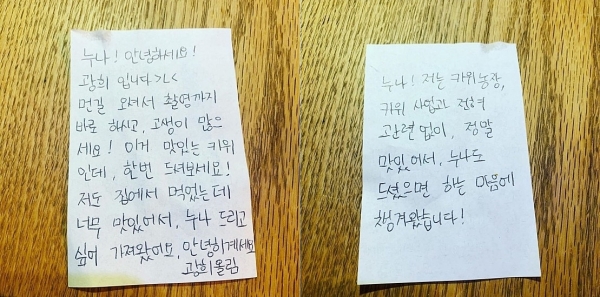 누나! 안녕하세요!
광희 입니다>.<
먼길 오셔서 촬영까지
바로 하시고, 고생이 많으
세요! 이거 맛있는 키위
인데, 한번 드셔보세요!
저도 집에서 먹었는데
너무 맛있어서, 누나 드리고
싶어 가져왔어요, 안녕히계세요
광희올림
누나! 저는 키위농장,
키위 사업과 전혀
관련 없이, 정말
맛있어서, 누나도
드셨으면 하는 마음에
챙겨왔습니다!